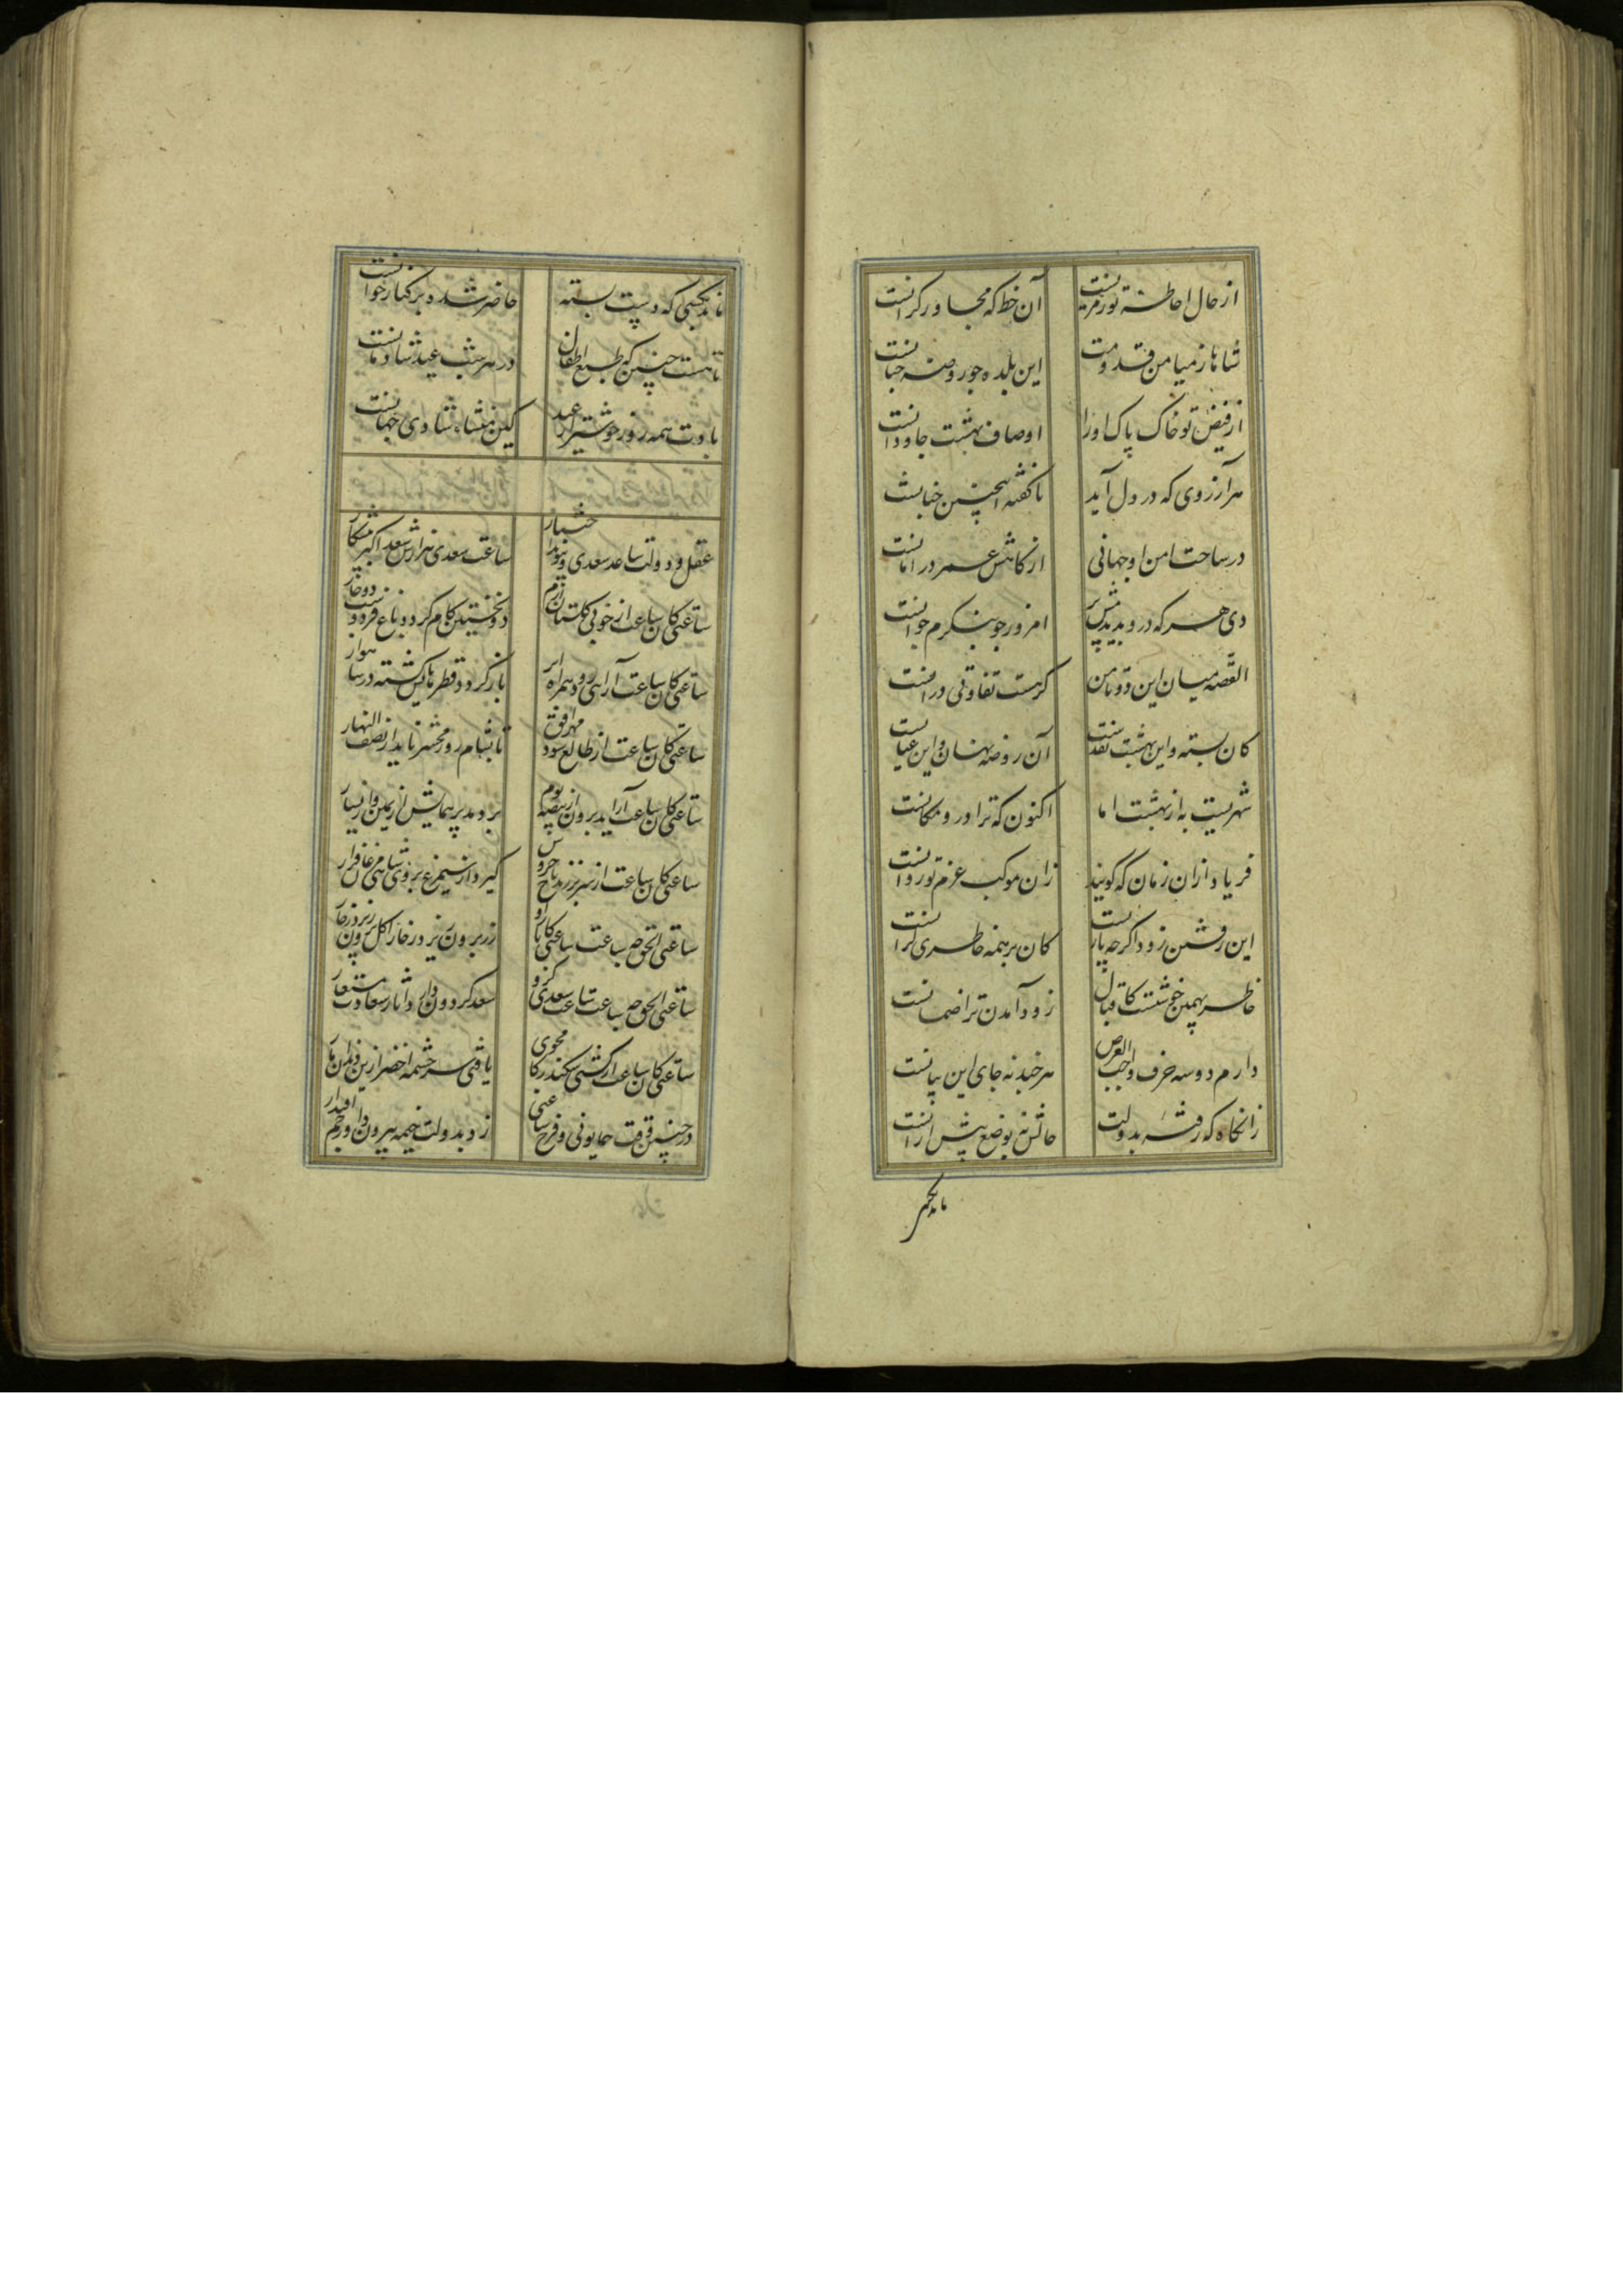 از حال احاطهٔ تو رمزیست آن خط که مجاور کرانست
شاها ز میامن قدومت این بلده چو روضهٔ جنانست
از فیض تو خاک پاک او را اوصاف بهشت جاودانست
هر آرزوی که در دل آید ناگفته همچنین چنانست
در ساحت امن او جهانی از کاهش عمر در امانست
دی هر که درو بدیدمش پیر امروز چو بنگرم جوانست
القصه میان این دو تا من گر هست تفاوتی در آنست
کان بسته و این بهشت نقدست آن روضه نهان و این عیانست
شهریست به از بهشت اما اکنون که ترا درو مکانست
فریاد از آن زمان که گویند زان موکب عزم تو روانست
این رفتن زود اگرچه باریست کان بر همه خاطری گرانست
خاطر بهمین خوشست کاقبال زود آمدن ترا ضمانست
دارم دو سه حرف واجب العرض هر چند نه جای این بیانست
زانگاه که رفته بدولت حالش نه بوضع پیش از آنست
ماند بکسی که دست بسته حاضر شده بر کنار خوانست
تا هست چنین که طبع اطفال در هر شب عید شادمانست
بادت همه روز خوشتر از عید کین منشاء شادی جهانست
عقل و دولت ساعد سعدی نمود اختیار ساعت سعدی هزارش سعد اکبر پیشکار
ساعتی کان ساعت از خوبی گلستان ارم
ساعتی کان ساعت ار آهی رود همراه ابر باز گردد قطره‌هاکش گشته در سا هوار
ساعتی کان ساعت از طالع شود مهر افق تا بشام روز محشر ناید از نصف النهار
ساعتی کان ساعت ار آید برون از بیضه بوم بردمد پر همایش از یمین و از یسار
ساعتی کان ساعت از سر بر زند تاج خروس گیرد از سیمرغ بر روی شاهی مرغان قرار
ساعتی الحق چه ساعت ساعتی کز
ساعتی الحق چه ساعت ساعت سعدی کزو سعد گردون دارد آثار سعادت مستعار
ساعتی کان ساعت ار گشتی سکندر گام‌جوی یافتی سرچشمه خضر
در چنین وقت همایونی و فرخ ساعتی زد بدولت خیمه بیرون داور جم اقتدار
ماند بکسی